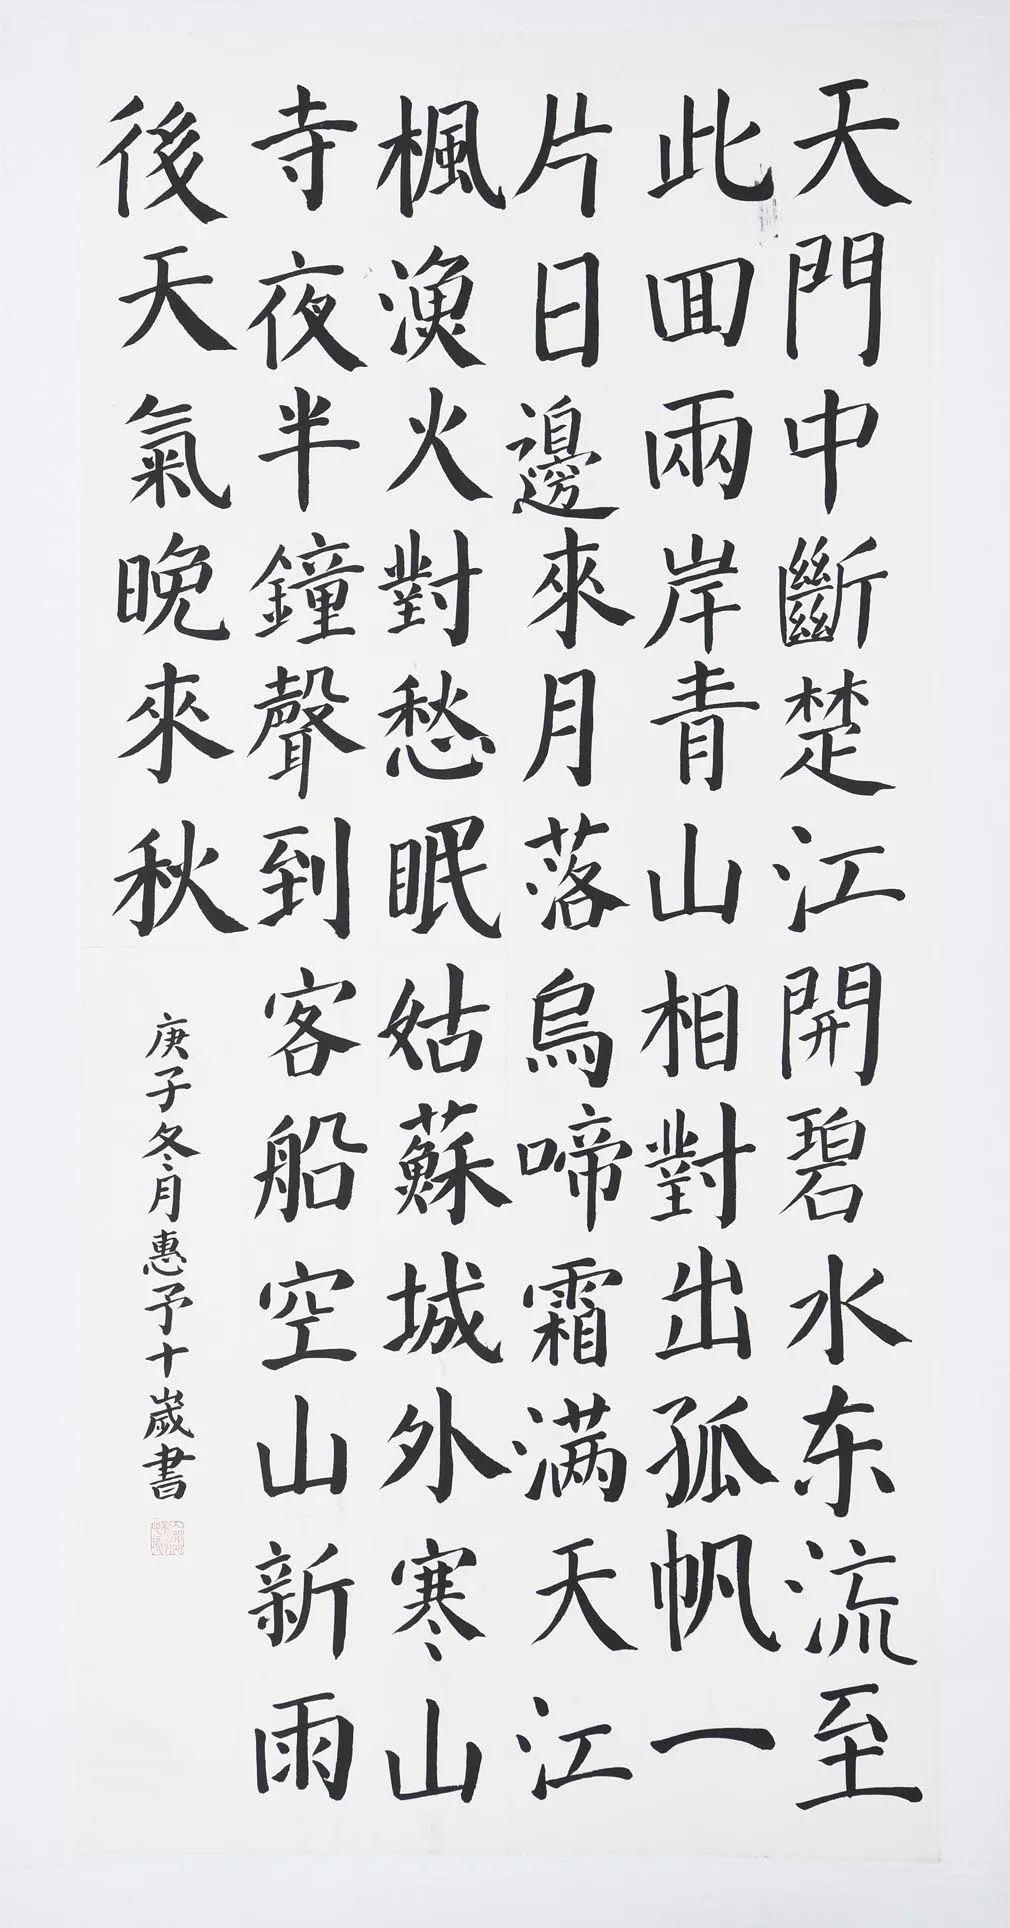 天門中斷楚江開碧水东流至
此回兩岸青山相對出孤帆一
片日邊來月落烏啼霜满天江
楓漁火對愁眠姑蘇城外寒山
寺夜半鐘聲到客船空山新雨
後天氣晚來秋
庚子冬月惠予十歲書